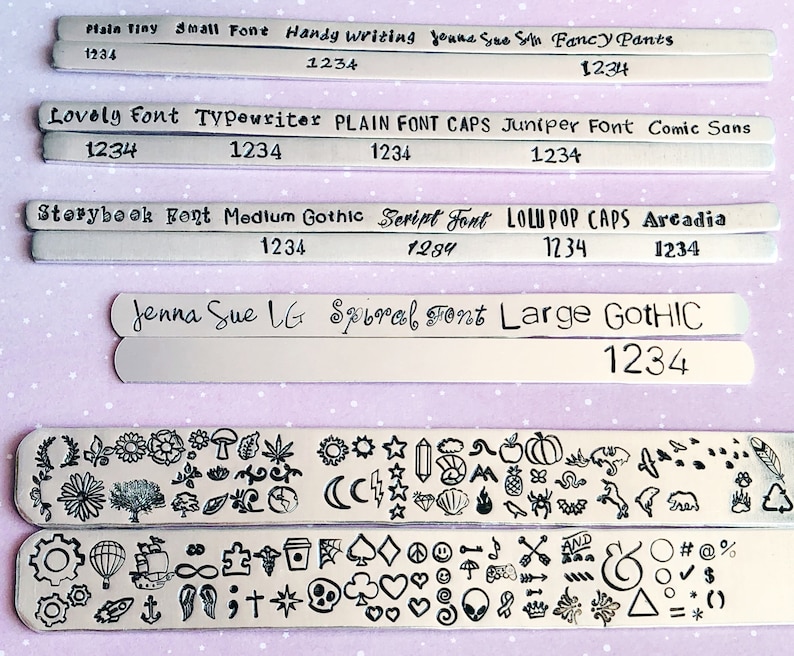 Plain Tiny Small Font Handy Writing Jenna Sue Sm Fancy Pants
1234 1234 1234
Lovely Font Typewriter PLAIN FONT CAPS Juniper Font Comic Sans
1234 1234 1234 1234
Storybook Font Medium Gothic Script Font LOLLIPOP CAPS Arcadia
1234 1234 1234 1234
Jenna Sue LG Spiral Font Large GotHIC
1234
AND & # @ %
; ✓ $
= * * ()